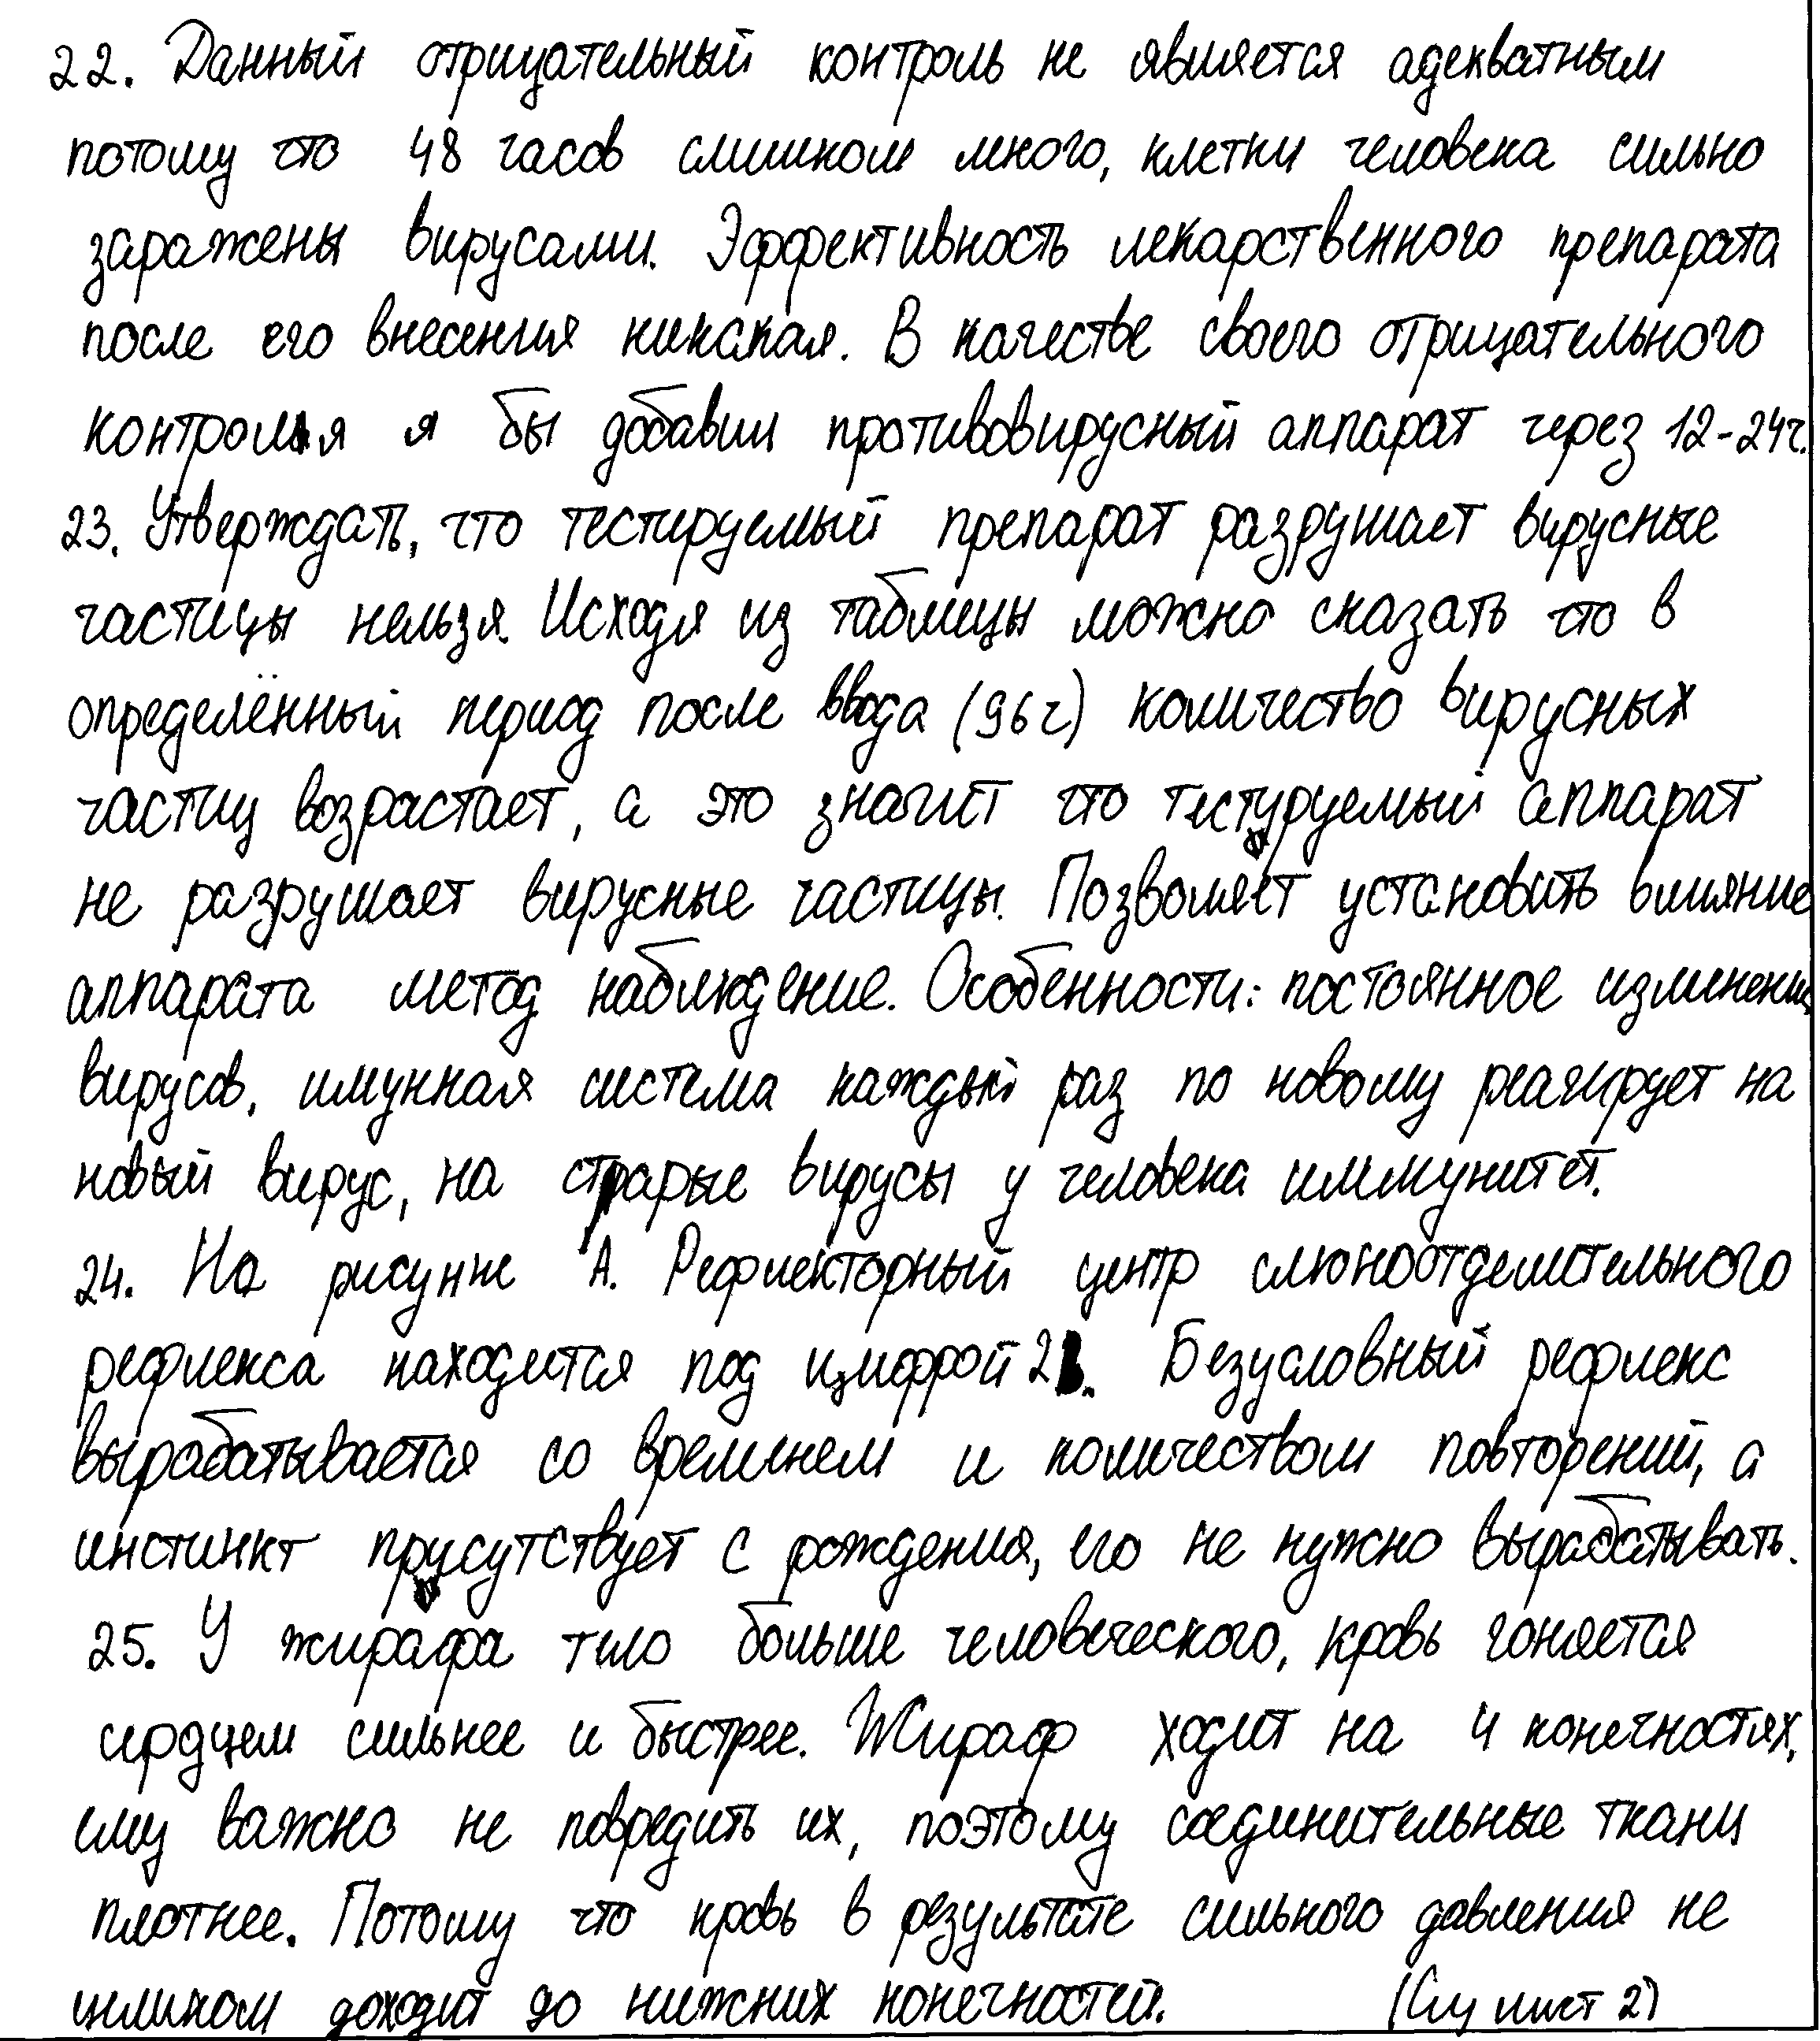 22. Данный отрицательный контроль не является адекватным
потому что 48 часов слишком много, клетки человека сильно
заражены вирусами. Эффективность лекарственного препарата
после его внесения никакая. В качестве своего отрицательного
контроля я бы добавил противовирусный аппарат через 12-24ч.
23. Утверждать, что тестируемый препарат разрушает вирусные
частицы нельзя. Исходя из таблицы можно сказать что в
определённый период после ввода (96ч) количество вирусных
частиц возрастает, а это значит что тестируемый аппарат
не разрушает вирусные частицы. Позволяет установить влияние
аппарата метод наблюдение. Особенности: постоянное изменени
вирусов, имунная система каждый раз по новому реагирует на
новый вирус, на старые вирусы у человека иммунитет.
24. На рисунке А. Рефлекторный центр слюноотделительного
рефлекса находится под цифрой 2. Безусловный рефлекс
вырабатывается со временем и количеством повторений, а
инстинкт присутствует с рождения, его не нужно вырабатывать.
25. У жирафа тело больше человеческого, кровь гоняется
сердцем сильнее и быстрее. Жираф ходит на 4 конечностях,
ему важно не повредить их, поэтому соединительные ткани
плотнее. Потому что кровь в результате сильного давления не
целиком доходит до нижних конечностей. (См лист 2)